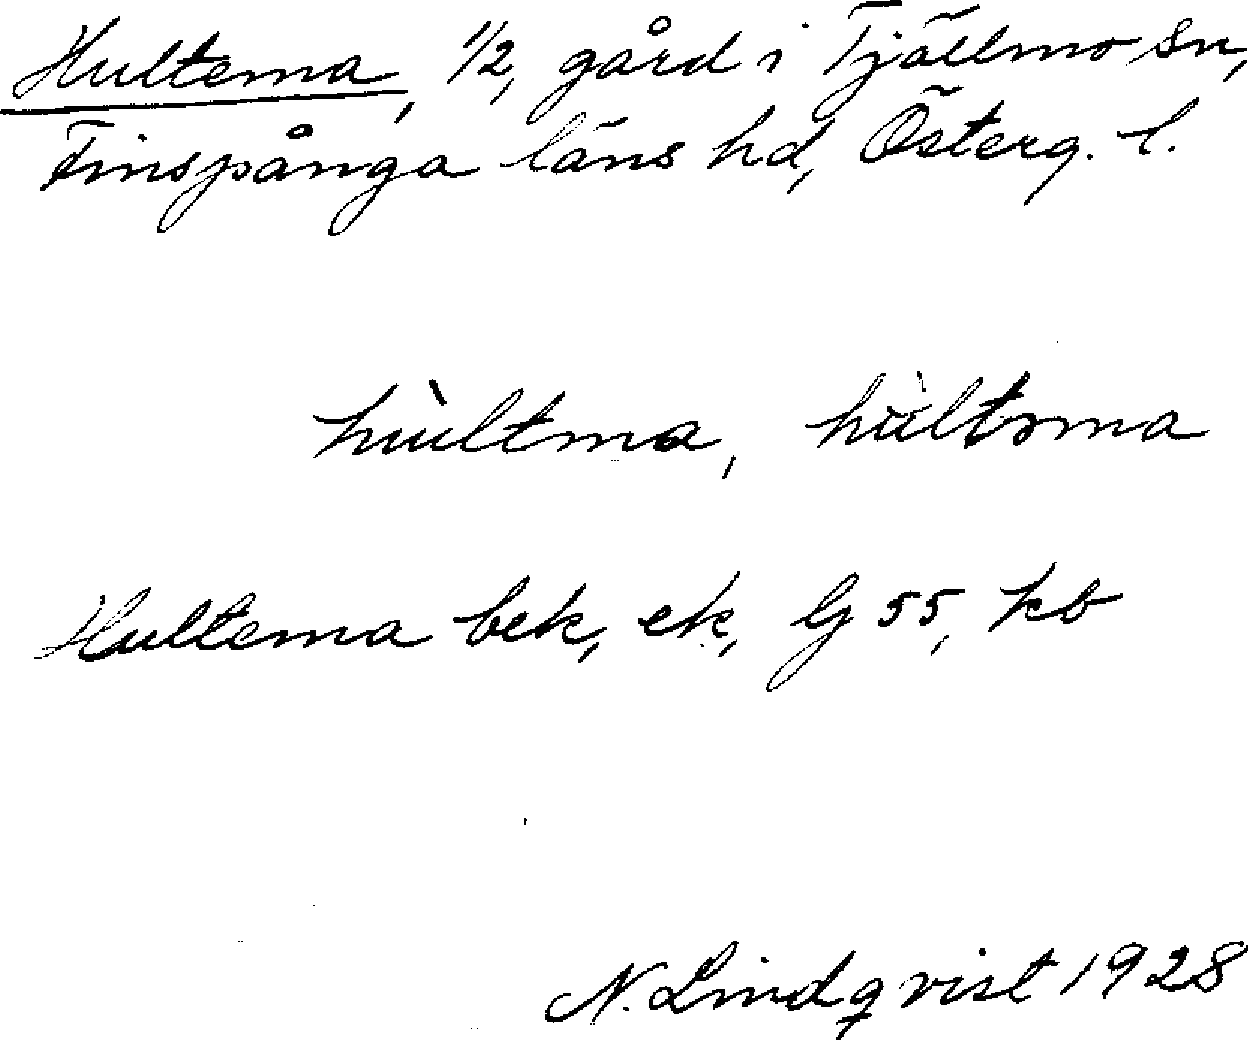 Hultema, 1/2, gård i Tjällmo sn,
Finspånga läns hd, Österg. l.
hùltma, hùltəma
Hultema bek, ek, Gj 55, kb
N. Lindqvist 1928